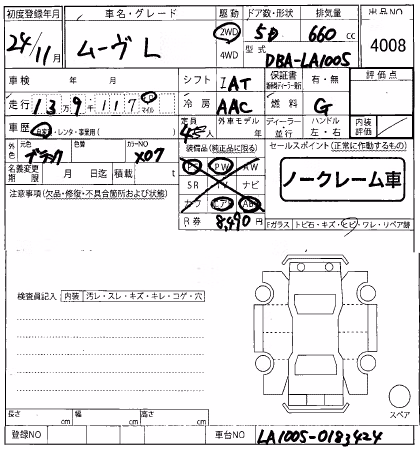 初度登録年月 車名・グレード 駆動 ドア数・形状 排気量 出品NO
24/11月 ムーヴ L 2WD 4WD 5D 660 cc 4008
型式 DBA-LA100S
車検 年 月 シフト IAT 保証書 有・無 評価点
走行 13万9千117 km マイル 冷房 AAC 燃料 G
車歴 自家用・レンタ・事業用( 定員 4人 外車モデル 年 ディーラー・並行 ハンドル 左・右 内装評価
外色 元色 ブラック 色替 カラーNO X07 装備品(純正品に限る) セールスポイント(正常に作動するもの)
名義変更期限 月 日迄 積載 t PS PW AW ノークレーム車
注意事項(欠品・修復・不具合箇所および状態) SR TV ナビ
カワ エアB ABS
R券 8,490円 Fガラス トビ石・キズ・ヒビ・ワレ・リペア跡
検査員記入 内装 汚レ・スレ・キズ・キレ・コゲ・穴
スペア
長さ cm 幅 cm 高さ cm
登録NO 車台NO LA100S-0183424